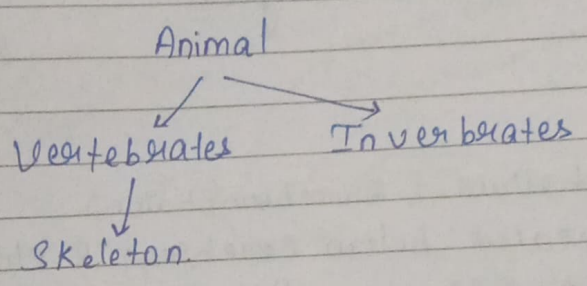 Animal
Vertebrates Inverbrates
Skeleton.